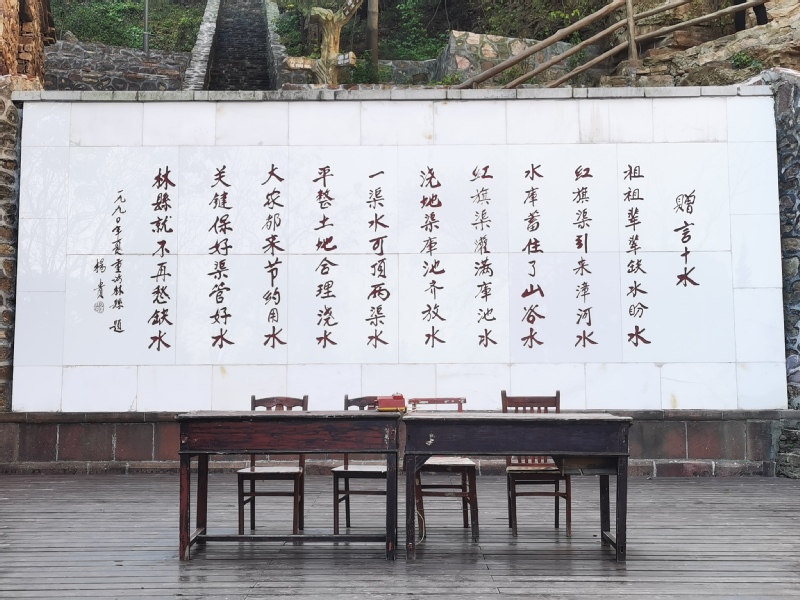 赠言十水
祖祖辈辈缺水盼水
红旗渠引来漳河水
水库蓄住了山谷水
红旗渠灌满库池水
浇地渠库池齐放水
一渠水可顶两渠水
平整土地合理浇水
大家都来节约用水
关键保好渠管好水
林县就不再愁缺水
一九九〇年夏重访林县题
杨贵